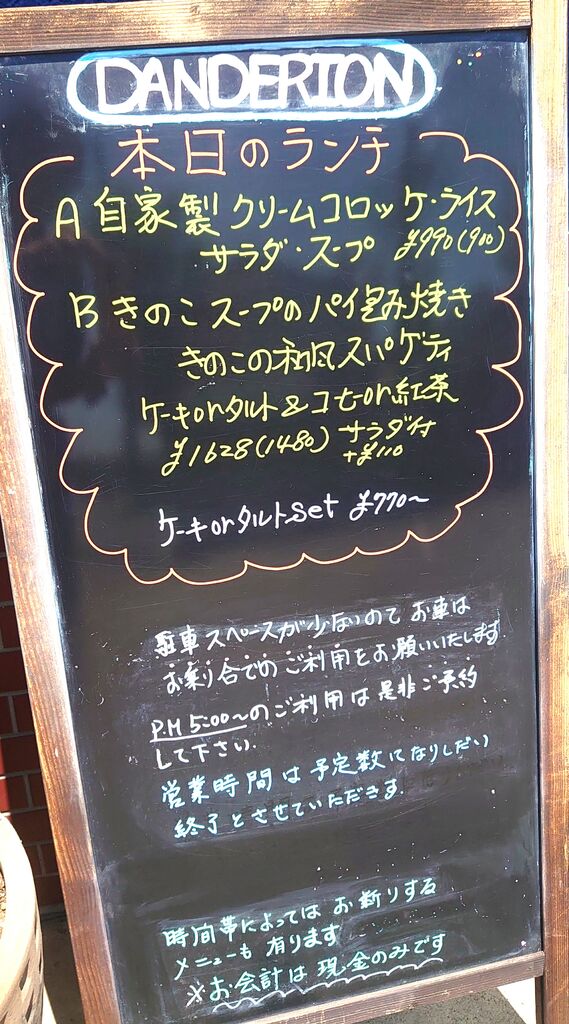 DANDERION
本日のランチ
A 自家製 クリームコロッケ・ライス
サラダ・スープ ¥990(900)
B きのこスープのパイ包み焼き
きのこの和風スパゲティ
ケーキorタルト&コヒーor紅茶
¥1628(1480) サラダ付
+¥110
ケーキorタルトset ¥770～
駐車スペースが少ないのでお車は
お乗り合でのご利用をお願いいたします
P.M 5:00～のご利用は是非ご予約
して下さい.
営業時間は予定数になりしだい
終了とさせていただきます.
時間帯によってはお断りする
メニューも有ります
※お会計は現金のみです